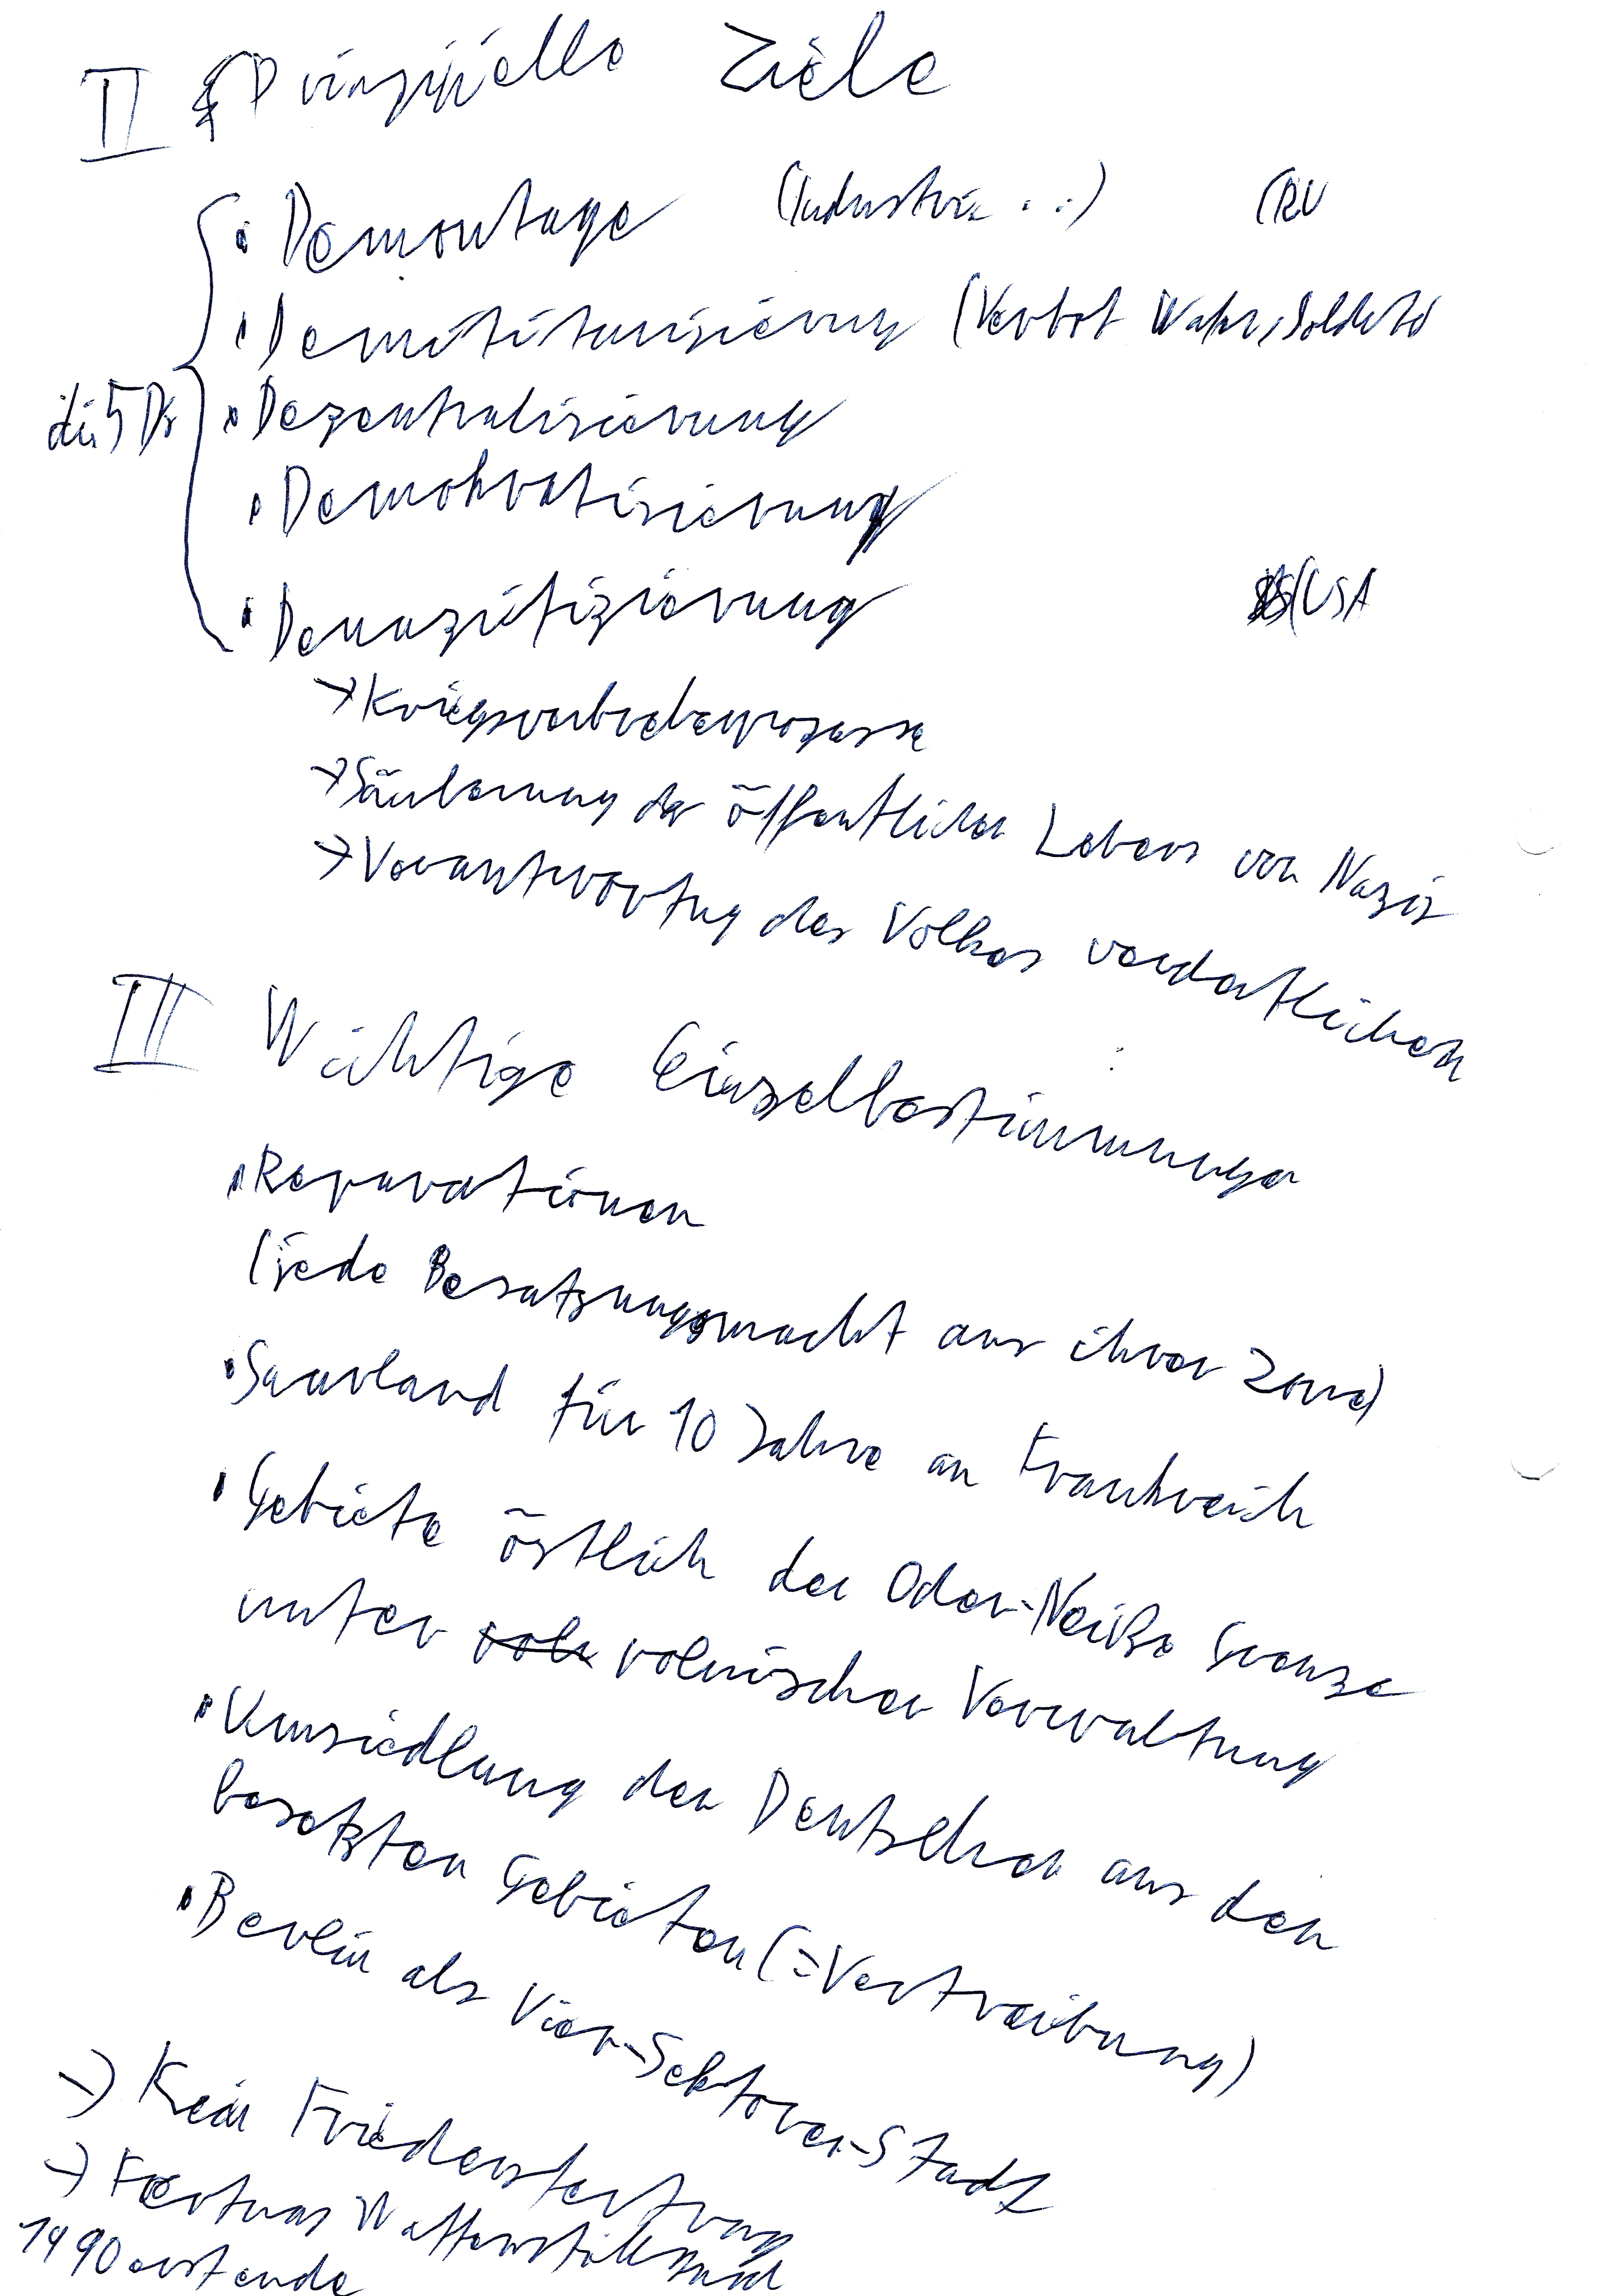 II Prinzipielle Ziele
• Demontage (Industrie ...) (RU
• Demilitarisierung (Verbot Waffen, Soldaten
die 5 Ds • Dezentralisierung
• Demokratisierung
• Denazifizierung (USA
→ Kriegsverbrecherprozesse
→ Säuberung des öffentlichen Lebens von Nazis
→ Verantwortung des Volkes verdeutlichen
III Wichtige Einzelbestimmungen
• Reparationen
(jede Besatzungsmacht aus ihrer Zone)
• Saarland für 10 Jahre an Frankreich
• Gebiete östlich der Oder-Neiße Grenze
unter poln polnischer Verwaltung
• Umsiedlung der Deutschen aus den
besetzten Gebieten (=Vertreibung)
• Berlin als Vier-Sektoren-Stadt
→ Kein Friedensvertrag
→ Waffenstillstand
1990 erst ende